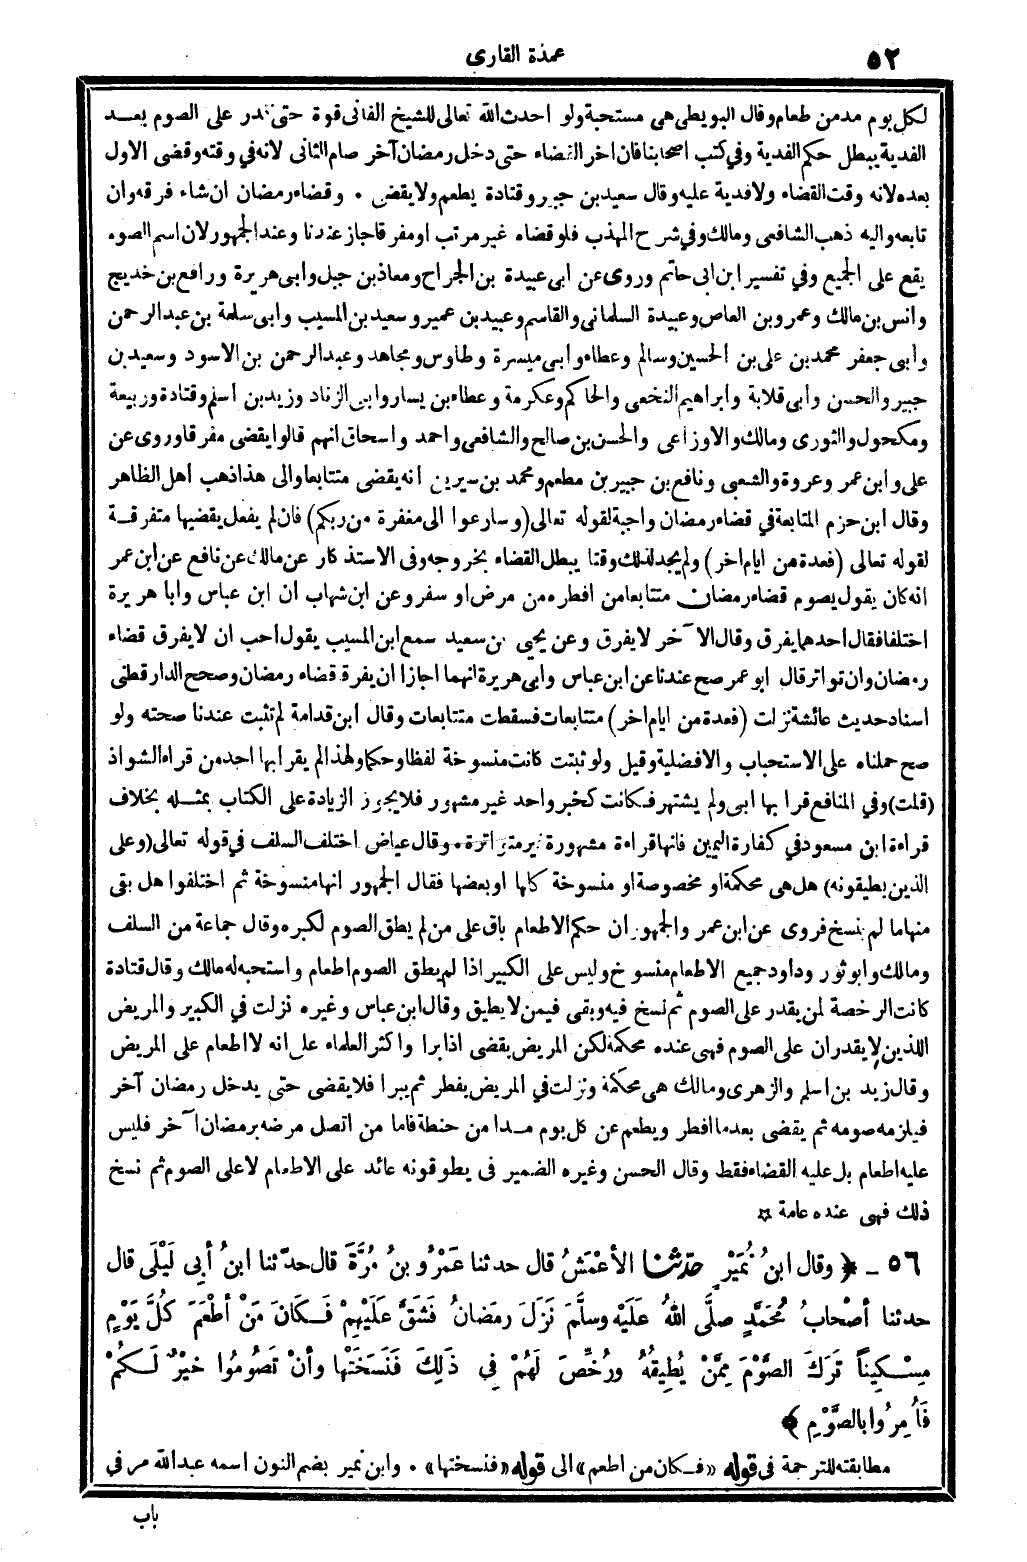 ٥٢
عمدة القارى
لكل يوم مد من طعام وقال البويطى هى مستحبة ولو احدث الله تعالى للشيخ الفانى قوة حتى قدر على الصوم بعد
الفدية يبطل حكم الفدية وفي كتب اصحابنا فان اخر القضاء حتى دخل رمضان آخر صام الثانى لانه في وقته وقضى الاول
بعده لانه وقت القضاء ولا فدية عليه وقال سعيد بن جبير وقتادة يطعم ولا يقضى . وقضاء رمضان ان شاء فرقه وان
تابعه واليه ذهب الشافعى ومالك وفي شرح المهذب فلو قضاه غير مرتب او مفرقا جاز عندنا وعند الجمهور لان اسم الصوم
يقع على الجميع وفي تفسير ابن ابى حاتم وروى عن ابى عبيدة بن الجراح ومعاذ بن جبل وابى هريرة ورافع بن خديج
وانس بن مالك وعمرو بن العاص وعبيدة السلمانى والقاسم وعبيد بن عمير وسعيد بن المسيب وابى سلمة بن عبد الرحمن
وأبى جعفر محمد بن على بن الحسين وسالم وعطاء وابى ميسرة وطاوس ومجاهد وعبد الرحمن بن الاسود وسعيد بن
جبير والحسن وأبى قلابة وابراهيم النخعى والحاكم وعكرمة وعطاء بن يسار وابى الزناد وزيد بن اسلم وقتادة وربيعة
ومكحول والثورى ومالك والاوزاعى والحسن بن صالح والشافعى واحمد واسحاق انهم قالوا يقضى مفرقا وروى عن
على وابن عمر وعروة والشعبى ونافع بن جبير بن مطعم ومحمد بن سيرين انه يقضى متتابعا والى هذا ذهب أهل الظاهر
وقال ابن حزم المتابعة في قضاء رمضان واجبة لقوله تعالى (وسارعوا الى مغفرة من ربكم) فان لم يفعل يقضيها متفرقة
لقوله تعالى (فعدة من ايام اخر) ولم يجد لذلك وقتا يبطل القضاء بخروجه وفى الاستذكار عن مالك عن نافع عن ابن عمر
انه كان يقول يصوم قضاء رمضان متتابعا من افطره من مرض او سفر وعن ابن شهاب ان ابن عباس وأبا هريرة
اختلفا فقال احدهما يفرق وقال الآخر لا يفرق وعن يحيى بن سعيد سمع ابن المسيب يقول أحب ان لا يفرق قضاء
رمضان وان تواتر قال ابو عمر صح عندنا عن ابن عباس وابى هريرة انهما اجازا ان يفرق قضاء رمضان وصحح الدارقطنى
اسناد حديث عائشة نزلت (فعدة من ايام اخر) متتابعات فسقطت متتابعات وقال ابن قدامة لم تثبت عندنا صحته ولو
صح حملناه على الاستحباب والافضلية وقيل ولو ثبتت كانت منسوخة لفظا وحكما ولهذا لم يقرا بها احد من قراء الشواذ
(قلت) وفي المنافع قرا بها ابى ولم يشتهر فكانت كخبر واحد غير مشهور فلا يجوز الزيادة على الكتاب بمثله بخلاف
قراءة ابن مسعود في كفارة اليمين فانها قراءة مشهورة غير متواترة . وقال عياض اختلف السلف في قوله تعالى (وعلى
الذين يطيقونه) هل هى محكمة او مخصوصة او منسوخة كلها او بعضها فقال الجمهور انها منسوخة ثم اختلفوا هل بقى
منها ما لم ينسخ فروى عن ابن عمر والجمهور ان حكم الاطعام باق على من لم يطق الصوم لكبره وقال جماعة من السلف
ومالك وابو ثور وداود جميع الاطعام منسوخ وليس على الكبير اذا لم يطق الصوم اطعام واستحبه له مالك وقال قتادة
كانت الرخصة لمن يقدر على الصوم ثم نسخ فيه وبقى فيمن لا يطيق وقال ابن عباس وغيره نزلت في الكبير والمريض
اللذين لا يقدران على الصوم فهى عنده محكمة لكن المريض يقضى اذا برا واكثر العلماء على انه لا اطعام على المريض
وقال زيد بن اسلم والزهرى ومالك هى محكمة ونزلت في المريض يفطر ثم يبرا فلا يقضى حتى يدخل رمضان آخر
فيلزمه صومه ثم يقضى بعد ما افطر ويطعم عن كل يوم مدا من حنطة فاما من اتصل مرضه برمضان آخر فليس
عليه اطعام بل عليه القضاء فقط وقال الحسن وغيره الضمير فى يطوقونه عائد على الاطعام لا على الصوم ثم نسخ
ذلك فهى عنده عامة ¤
٥٦ - ﴿ وقال ابنُ نُمَيْرٍ حدّثنا الأعْمَشُ قال حدثنا عَمْرُو بنُ مُرَّةَ قال حدّثنا ابنُ أبِى لَيْلَى قال
حدثنا أصْحابُ مُحَمَّدٍ صلَّى اللهُ عَلَيْهِ وسلَّمَ نَزَلَ رمَضانُ فَشَقَّ عَلَيْهِمْ فَكانَ مَنْ أطْعَمَ كُلَّ يَوْمٍ
مِسْكِيناً تَرَكَ الصَّوْمَ مِمَّنْ يُطِيقُهُ ورُخِّصَ لَهُمْ فِي ذَلِكَ فَنَسَخَتْها وأنْ تَصُومُوا خَيْرٌ لَكُمْ
فَأُمِرُوا بالصَّوْمِ ﴾
مطابقته للترجمة فى قوله «فكان من اطعم» الى قوله «فنسختها» . وابن نمير بضم النون اسمه عبد الله مر في
باب